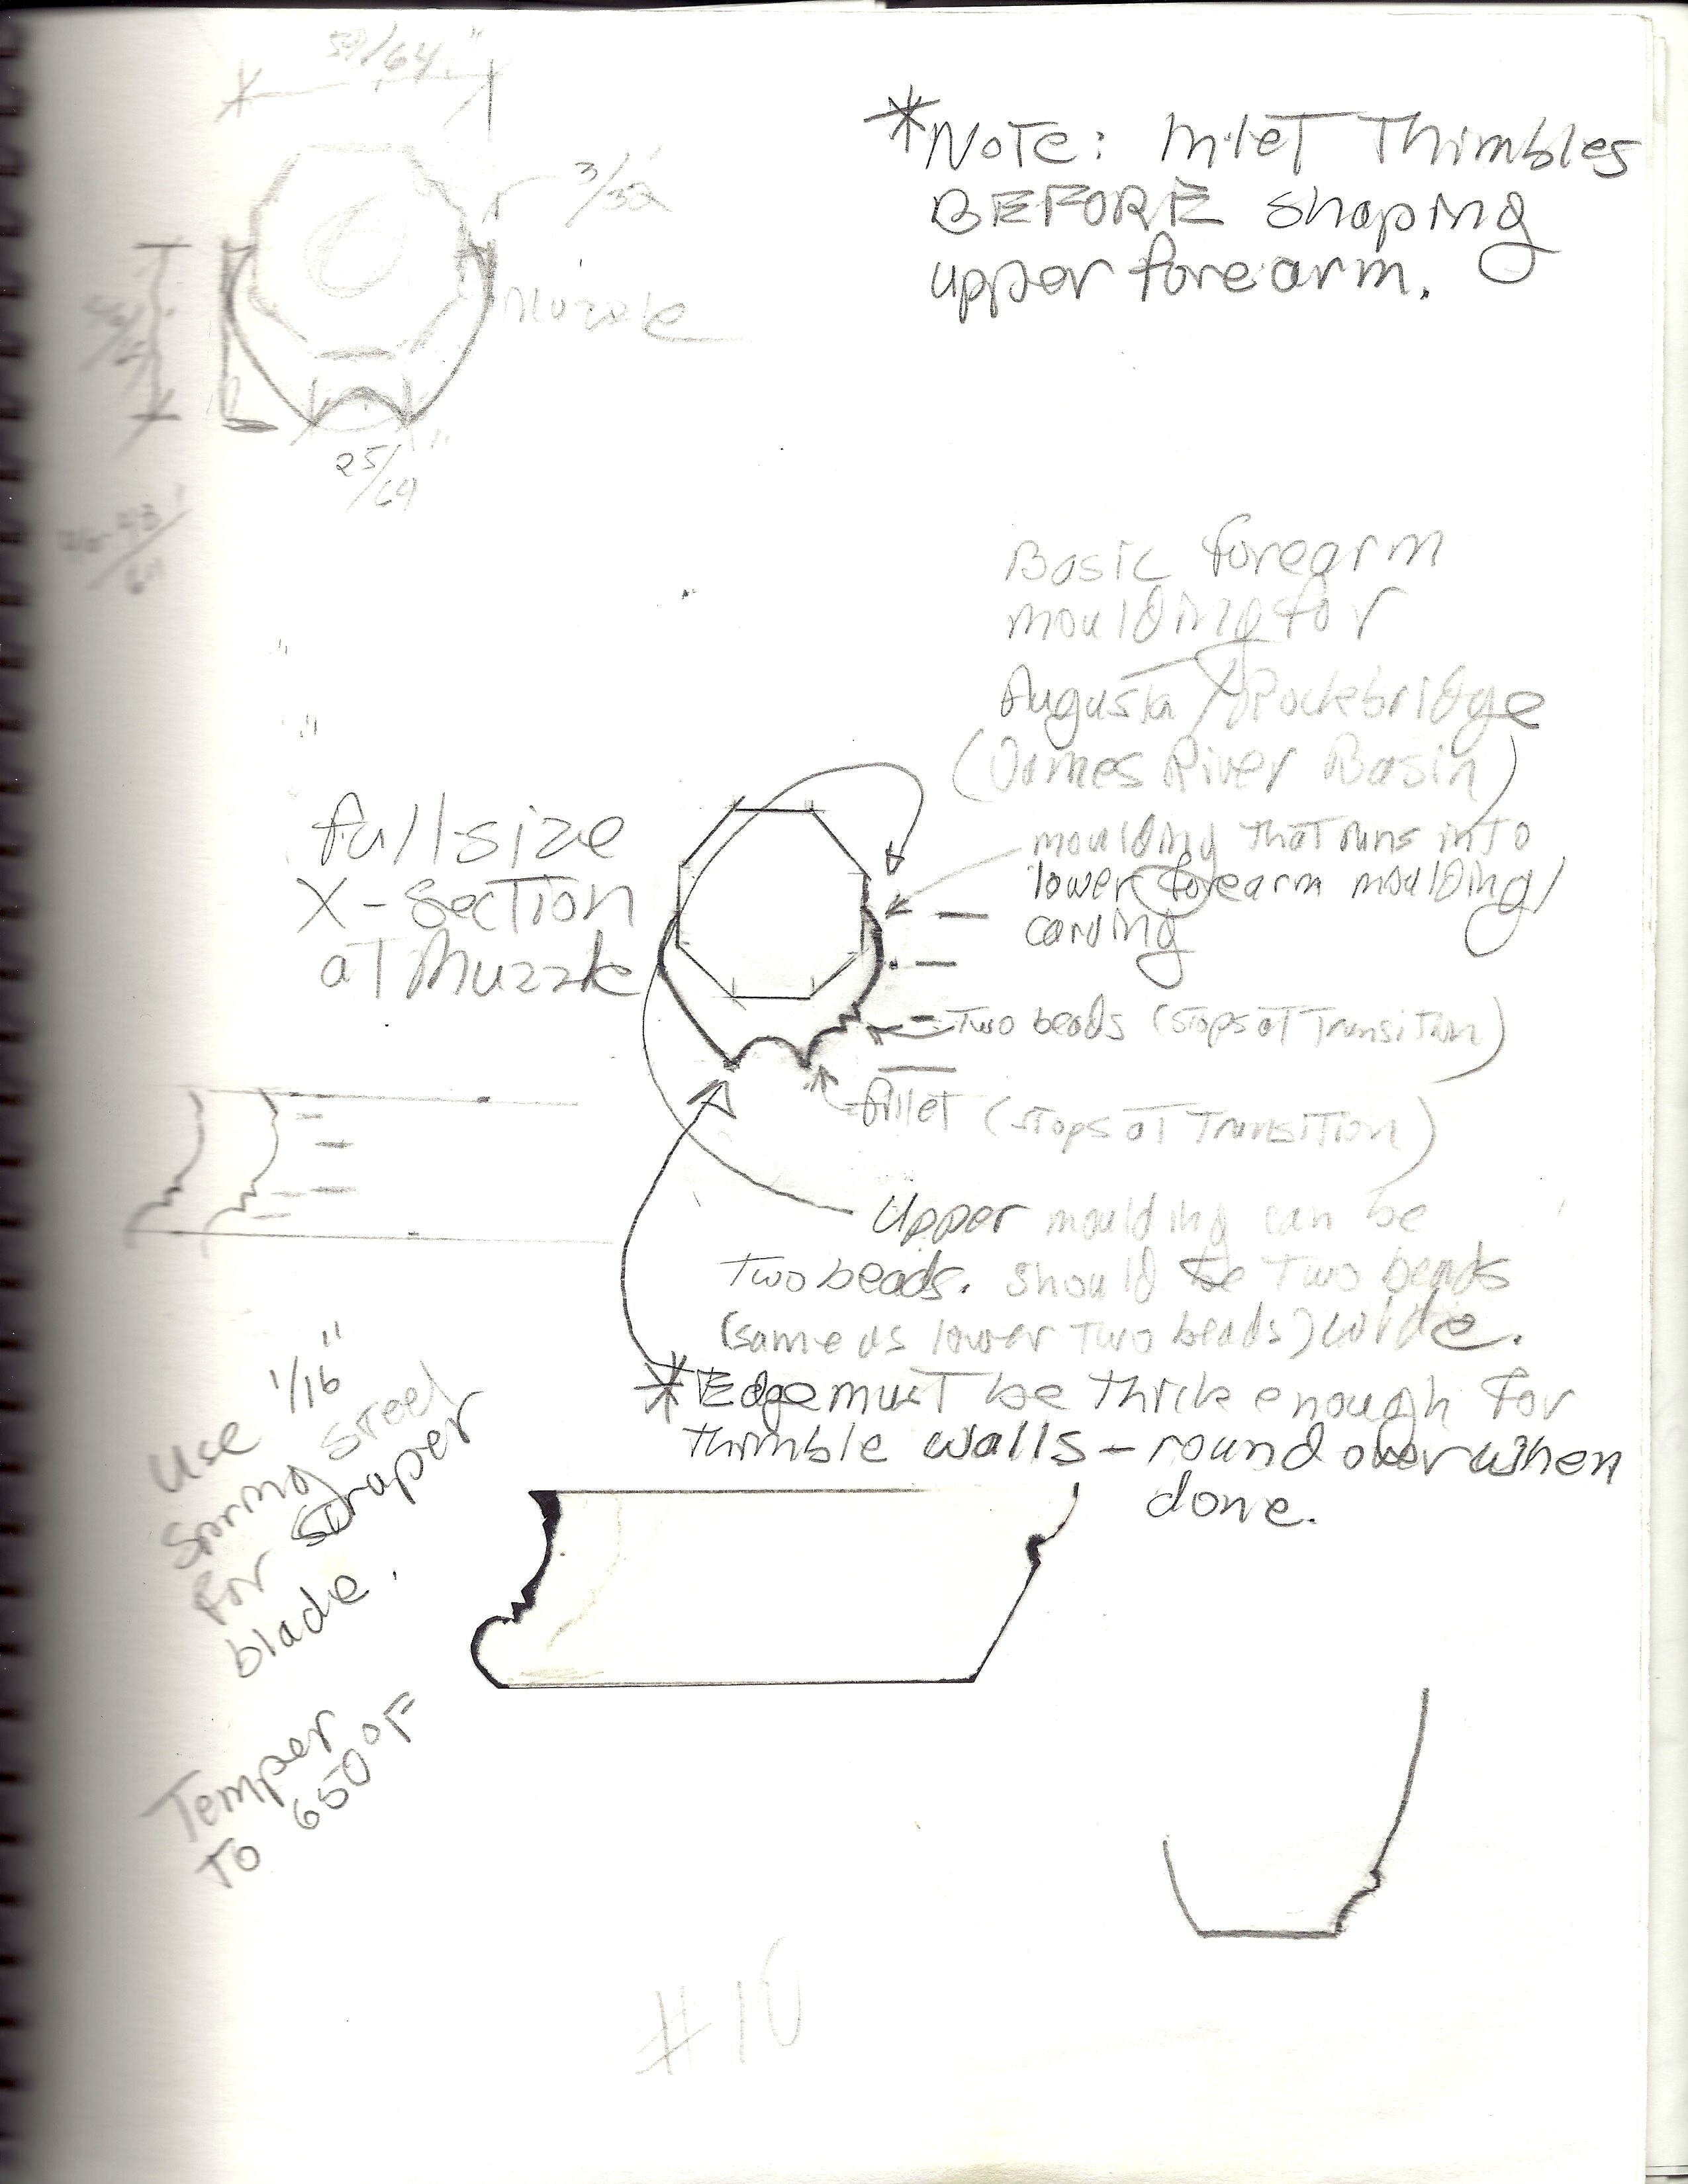 59/64"
*Note: Inlet Thimbles
BEFORE shaping
upper forearm.
3/32
Muzzle
25/64"
Basic forearm
moulding for
Augusta/Rockbridge
(James River Basin)
full size
X-section
at Muzzle
moulding that runs into
lower forearm moulding/
carving
Two beads (stops at transition)
fillet (stops at transition)
Upper moulding can be
Two beads. should be Two beads
(same as lower two beads) wide.
*Edge must be thick enough for
thimble walls - round over when
done.
Use 1/16"
Spring Steel
for scraper
blade.
Temper
to 650°F
#10